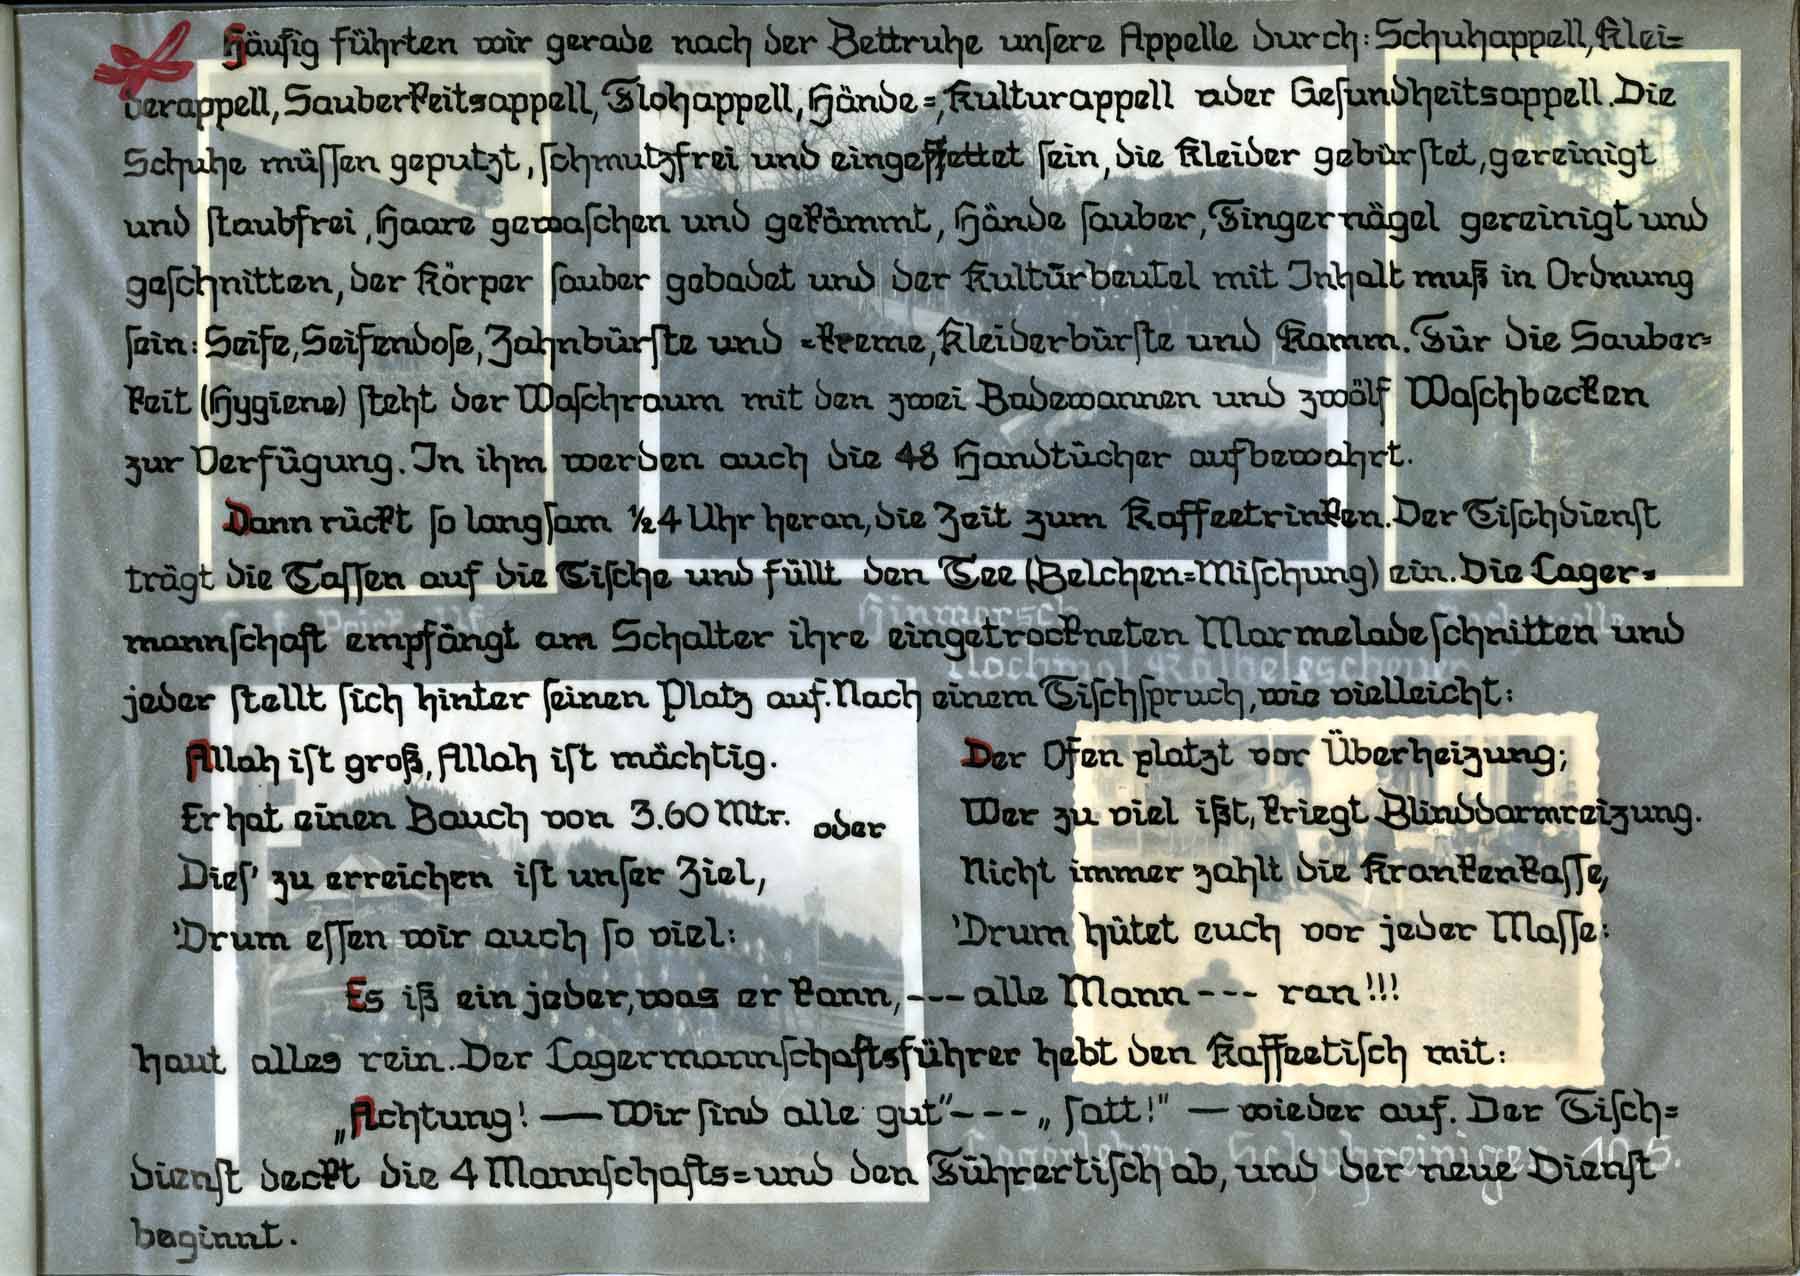 Häufig führten wir gerade nach der Bettruhe unsere Appelle durch: Schuhappell, Klei=
derappell, Sauberkeitsappell, Flohappell, Hände=, Kulturappell oder Gesundheitsappell. Die
Schuhe müssen geputzt, schmutzfrei und eingefettet sein, die Kleider gebürstet, gereinigt
und staubfrei, Haare gewaschen und gekämmt, Hände sauber, Fingernägel gereinigt und
geschnitten, der Körper sauber gebadet und der Kulturbeutel mit Inhalt muß in Ordnung
sein: Seife, Seifendose, Zahnbürste und =kreme, Kleiderbürste und Kamm. Für die Sauber=
keit (Hygiene) steht der Waschraum mit den zwei Badewannen und zwölf Waschbecken
zur Verfügung. In ihm werden auch die 48 Handtücher aufbewahrt.
Dann rückt so langsam ½4 Uhr heran, die Zeit zum Kaffeetrinken. Der Tischdienst
trägt die Tassen auf die Tische und füllt den Tee (Belchen=Mischung) ein. Die Lager=
Hinmarsch
mannschaft empfängt am Schalter ihre eingetrockneten Marmeladeschnitten und
Nochmal Kälbelescheuer
jeder stellt sich hinter seinen Platz auf. Nach einem Tischspruch, wie vielleicht:
Allah ist groß, Allah ist mächtig.
Er hat einen Bauch von 3.60 Mtr.
Dies' zu erreichen ist unser Ziel,
'Drum essen wir auch so viel:
oder
Der Ofen platzt vor Überheizung;
Wer zu viel ißt, kriegt Blinddarmreizung.
Nicht immer zahlt die Krankenkasse,
'Drum hütet euch vor jeder Masse:
Es iß ein jeder, was er kann, --- alle Mann --- ran!!!
haut alles rein. Der Lagermannschaftsführer hebt den Kaffeetisch mit:
„Achtung! — Wir sind alle gut" --- „satt!" — wieder auf. Der Tisch=
Lagerleben: Schuhreinigen 10.5.
dienst deckt die 4 Mannschafts= und den Führertisch ab, und der neue Dienst
beginnt.